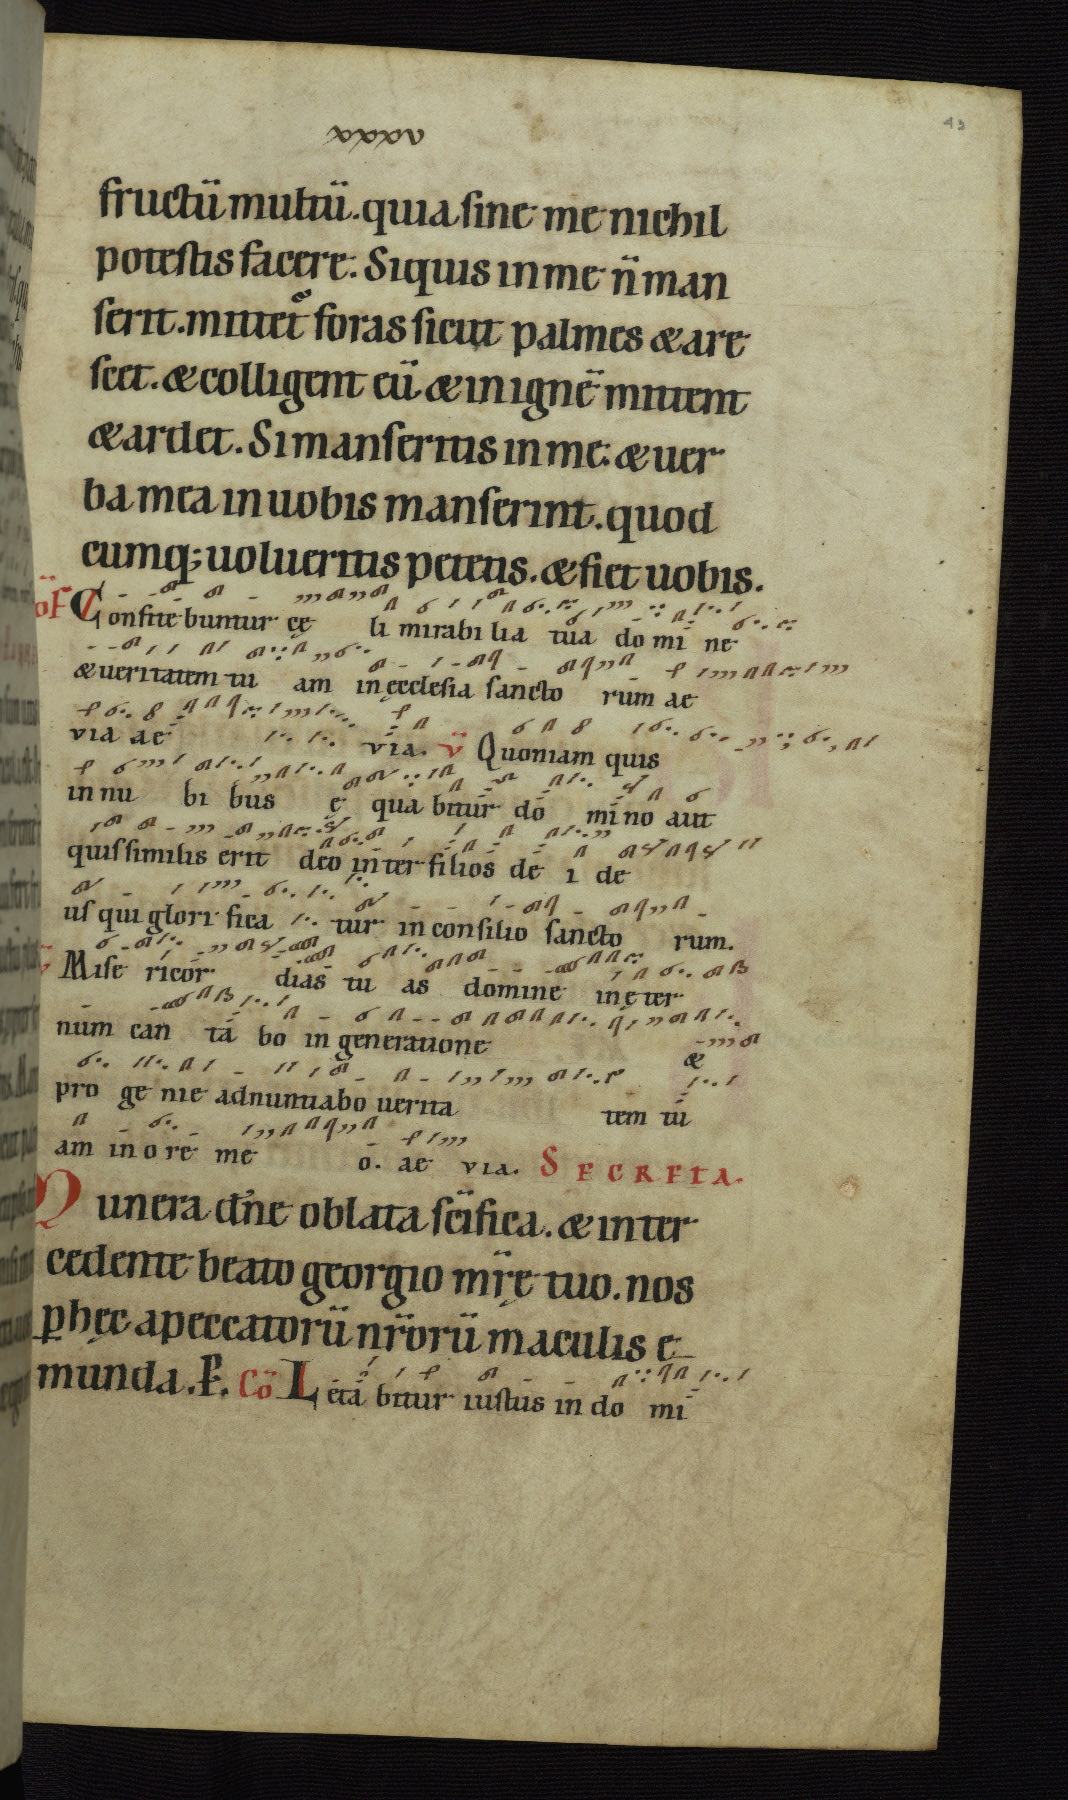 xxxv
43
fructū multū. quia sine me nichil
potestis facere. Siquis in me n̄ man
serit. mittet᷑ foras sicut palmes & are
scet. & colligent eū & in ignē mittent
& ardet. Si manseritis in me. & uer
ba mea in uobis manserint. quod
cumq; uolueritis petetis. & fiet uobis.
OF Confitebuntur cę li mirabilia tua domine
& ueritatem tu am in ęcclesia sancto rum ae
via ae via. V̄ Quoniam quis
in nu bi bus ę qua bitur do mino aut
quis similis erit deo inter filios de i de
us qui glori fica tur in consilio sancto rum.
V̄ Mise ricor dias tu as domine in ę ter
num can ta bo in generatione &
pro ge nie adnuntiabo uerita tem tu
am in o re me o. ae via. SECRETA.
Munera dn̄e oblata scīfica. & inter
cedente beato georgio mr̄ę tuo. nos
p hęc a peccatorū nr̄orū maculis e
munda. P. Cō Letabitur iustus in do mi